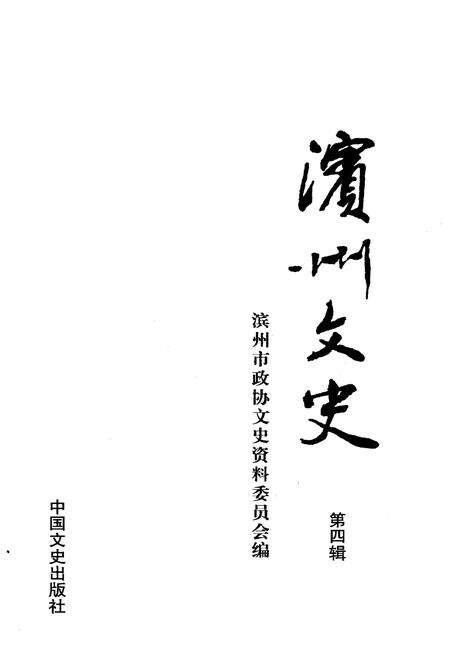 濱州文史
第四辑
滨州市政协文史资料委员会编
中国文史出版社